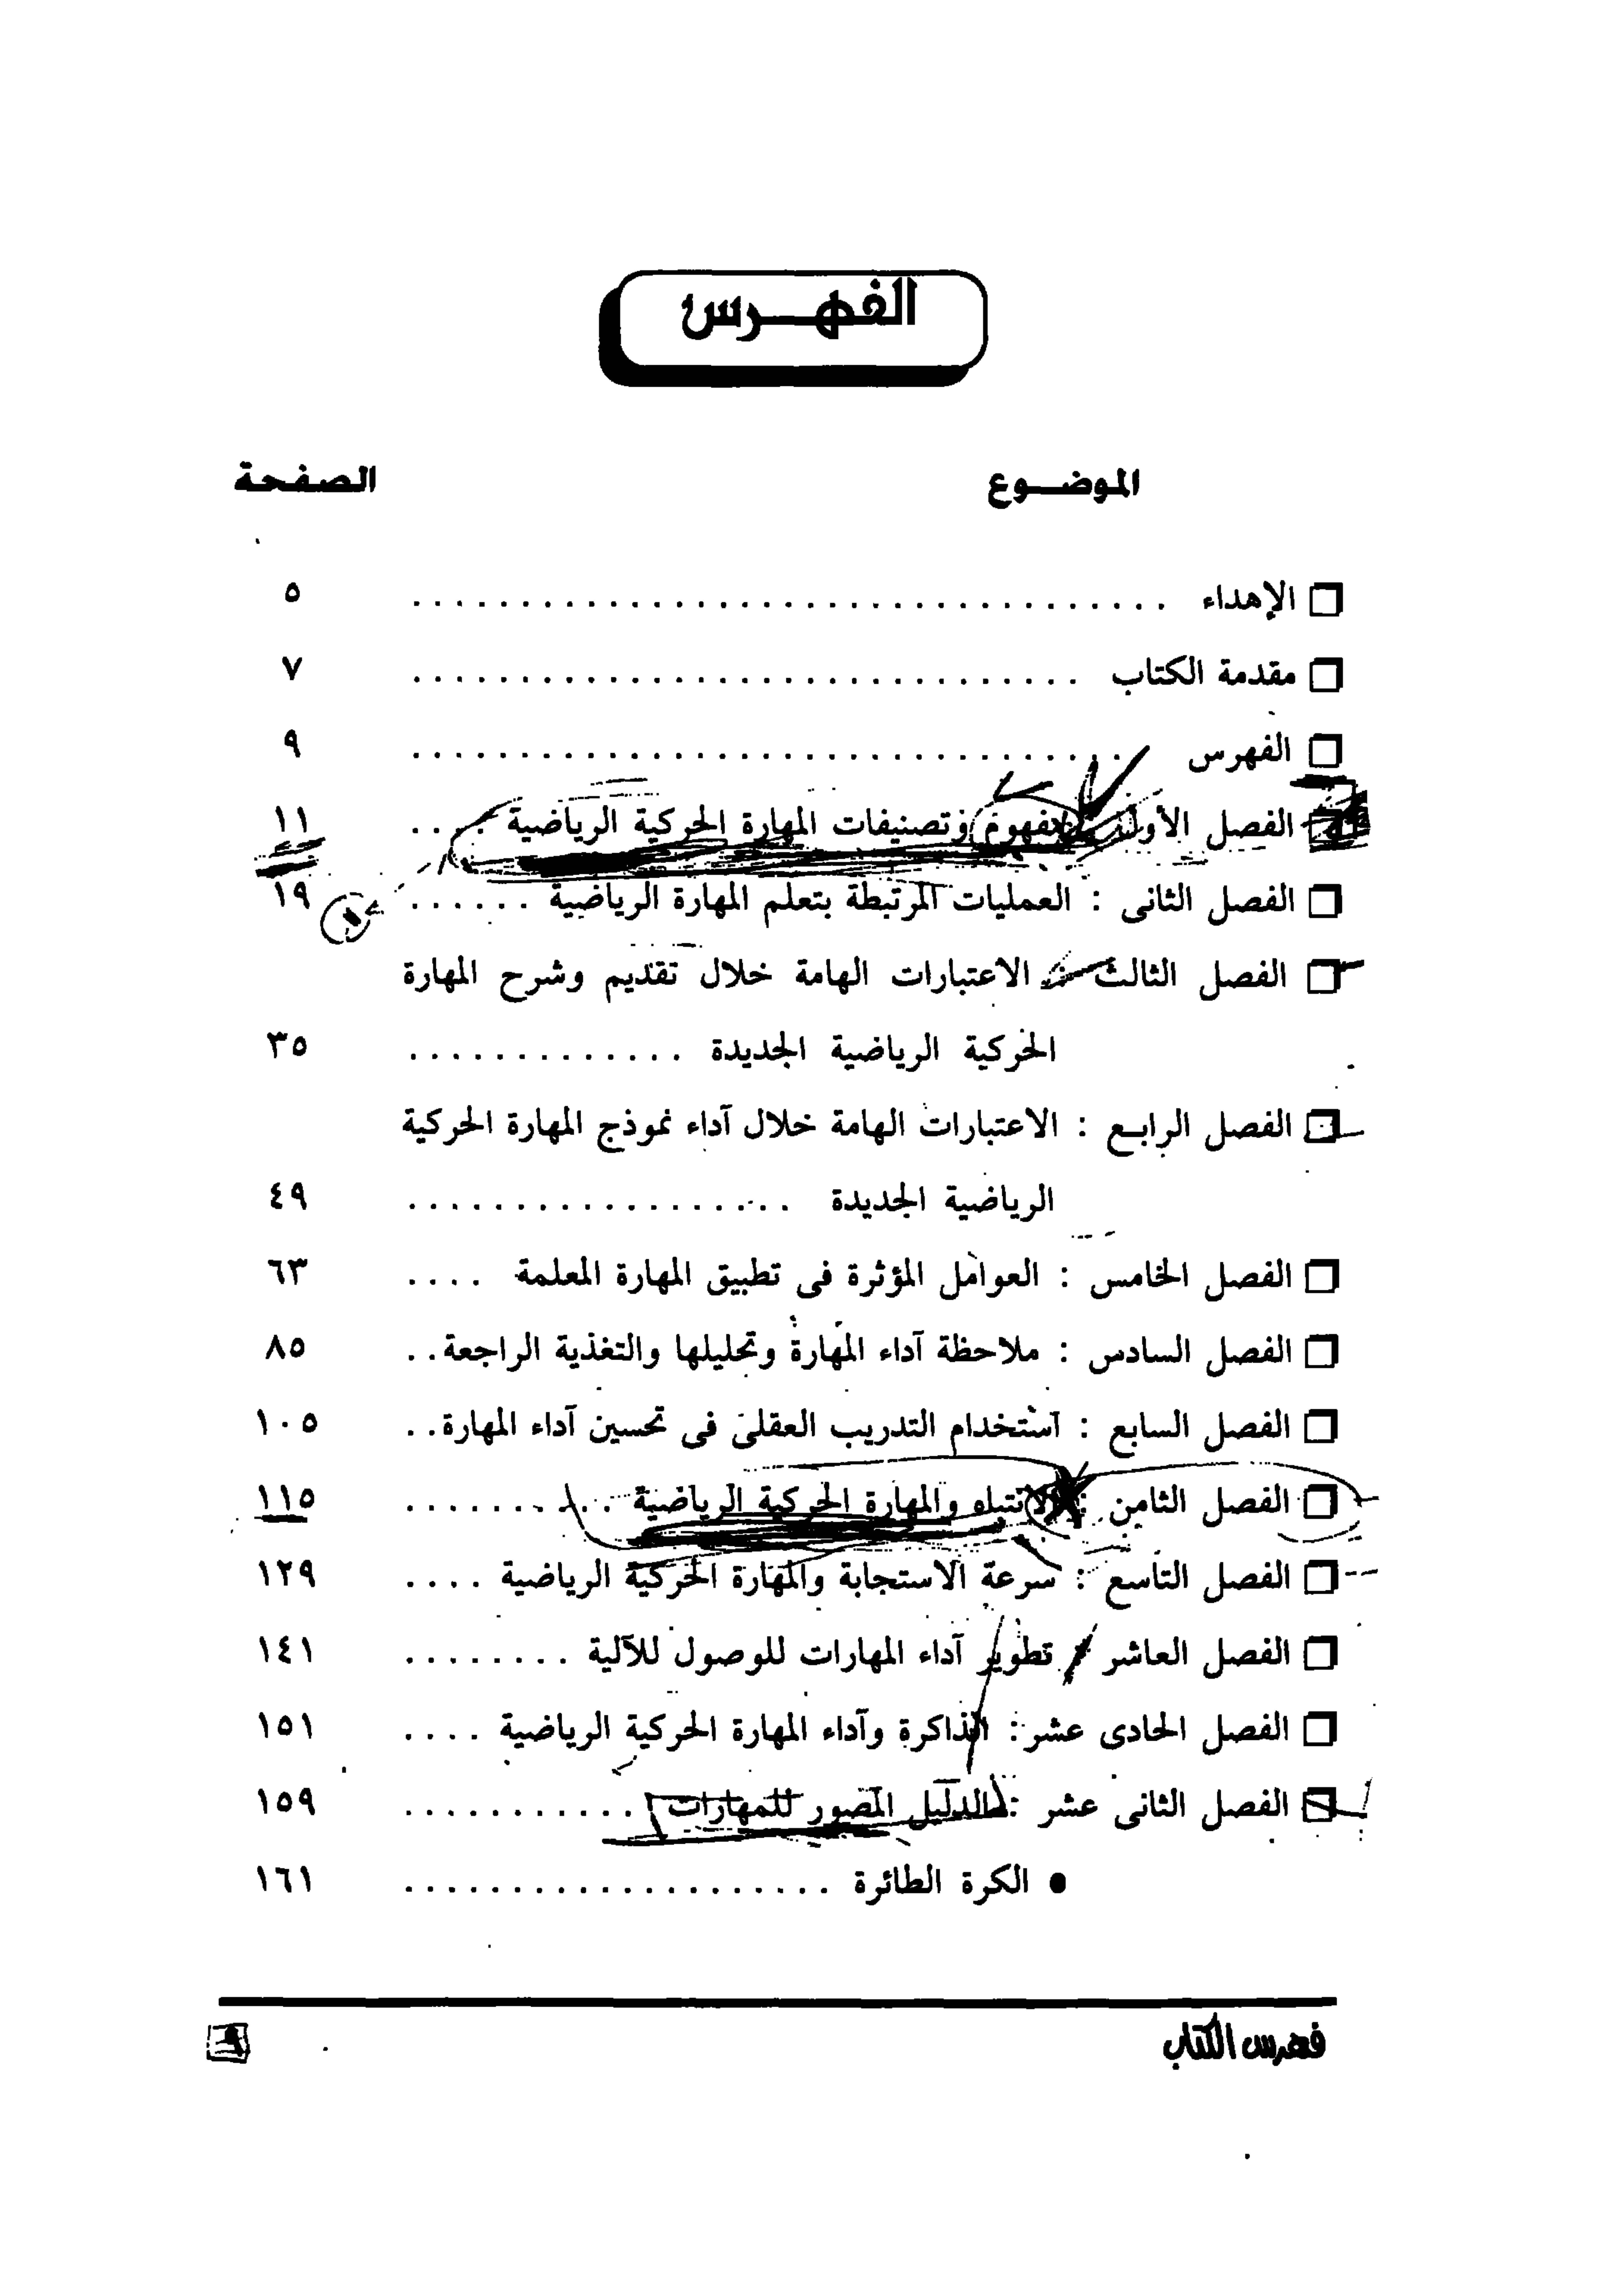 الفهـــرس
الموضـــوع الصفحة
الإهداء ................................... ٥
مقدمة الكتاب ............................... ٧
الفهرس ................................. ٩
الفصل الأول : مفهوم وتصنيفات المهارة الحركية الرياضية .... ١١
الفصل الثانى : العمليات المرتبطة بتعلم المهارة الرياضية ...... ١٩
الفصل الثالث : الاعتبارات الهامة خلال تقديم وشرح المهارة
الحركية الرياضية الجديدة ............. ٣٥
الفصل الرابع : الاعتبارات الهامة خلال آداء نموذج المهارة الحركية
الرياضية الجديدة .................. ٤٩
الفصل الخامس : العوامل المؤثرة فى تطبيق المهارة المعلمة .... ٦٣
الفصل السادس : ملاحظة آداء المهارة وتحليلها والتغذية الراجعة .. ٨٥
الفصل السابع : استخدام التدريب العقلى فى تحسين آداء المهارة .. ١٠٥
الفصل الثامن : الانتباه والمهارة الحركية الرياضية .......... ١١٥
الفصل التاسع : سرعة الاستجابة والمهارة الحركية الرياضية .... ١٢٩
الفصل العاشر : تطوير آداء المهارات للوصول للآلية ........ ١٤١
الفصل الحادى عشر : الذاكرة وآداء المهارة الحركية الرياضية .... ١٥١
الفصل الثانى عشر : الدليل المصور للمهارات ........... ١٥٩
● الكرة الطائرة .................... ١٦١
فهرس الكتاب ٩